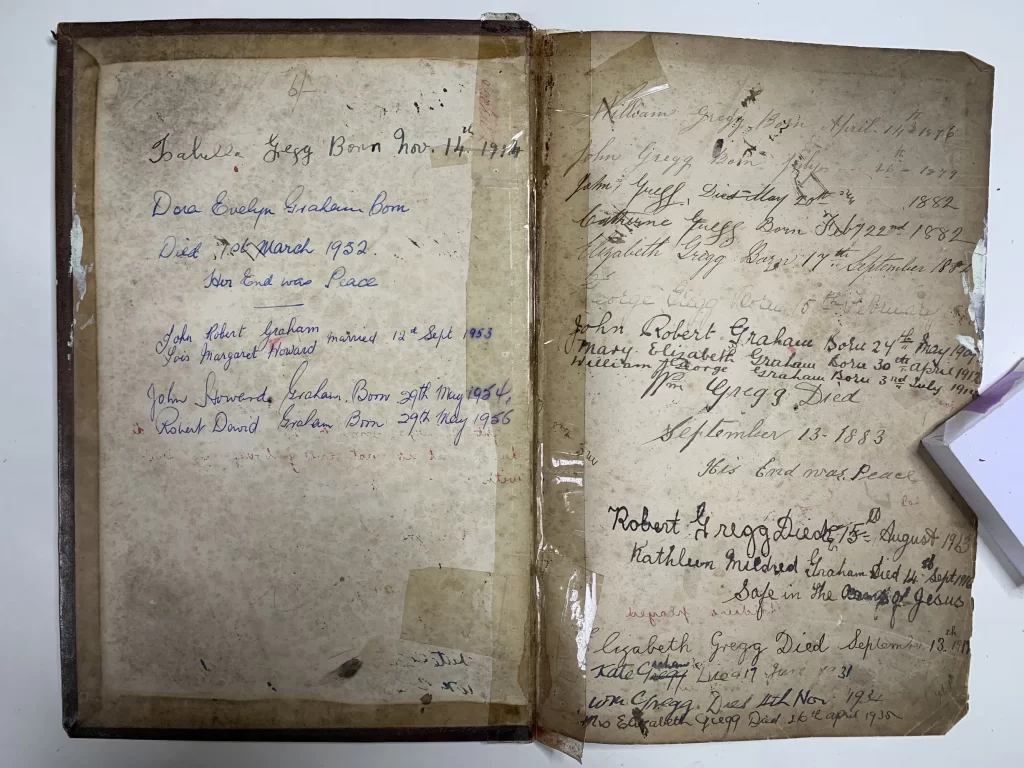 6/-
Isabella Gregg Born Nov. 14th
Dora Evelyn Graham Born
Died March 1952.
Her End was Peace
John Robert Graham
Lois Margaret Howard married 12th Sept 1953
John Howard Graham. Born 29th May 1954.
Robert David Graham Born 29th May 1956
William Gregg Born April 14th 1876
John Gregg Born 26th - 1879
John Gregg, Died May 20th 1882
Catherine Gregg Born Feb 22nd 1882
Elizabeth Gregg Born 17th September
George Gregg Born 5th February
John Robert Graham Born 24th May
Mary Elizabeth Graham Born 30th April
William George Graham Born 3rd July
Wm Gregg Died
September 13 - 1883
His End was Peace
Robert Gregg Died 15th August
Kathleen Mildred Graham Died 14th Sept
Safe in the Arms of Jesus
Elizabeth Gregg Died September 13th
Kate 17 June 31
Wm Gregg. Died 11th Nov.
Mrs Elizabeth Gregg Died 26th April